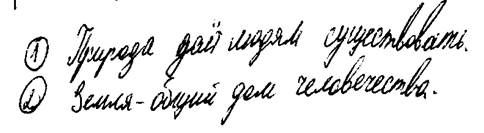 ① Природа даёт людям существовать.
② Земля - общий дом человечества.